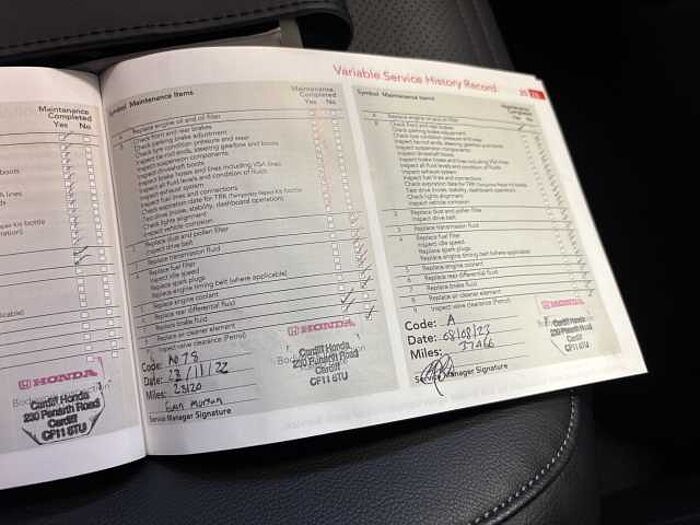 Variable Service History Record
Maintenance
Completed
Yes No
HONDA
Cardiff Honda
230 Penarth Road
Cardiff
CF11 6TU
Symbol Maintenance Items
Maintenance
Completed
Yes No
A Replace engine oil and oil filter
Check front and rear brakes
Check parking brake adjustment
Check tyre condition pressure and wear
Inspect tie-rod ends, steering gearbox and boots
Inspect suspension components
Inspect driveshaft boots
Inspect brake hoses and lines including VSA lines
Inspect all fluid levels and condition of fluids
Inspect exhaust system
Inspect fuel lines and connections
Check expiration date for TRK (Temporary Repair Kit bottle)
Test drive (noises, stability, dashboard operation)
Check lights alignment
Inspect vehicle corrosion
2 Replace dust and pollen filter
Inspect drive belt
3 Replace transmission fluid
4 Replace fuel filter
Inspect idle speed
Replace spark plugs
Replace engine timing belt (where applicable)
5 Replace engine coolant
6 Replace rear differential fluid
7 Replace brake fluid
8 Replace air cleaner element
9 Inspect valve clearance (Petrol)
Code: A078
Date: /11/22
Miles: 23120
Service Manager Signature
HONDA
Cardiff Honda
230 Penarth Road
Cardiff
CF11 6TU
Symbol Maintenance Items
Maintenance
Completed
Yes No
A Replace engine oil and oil filter
Check front and rear brakes
Check parking brake adjustment
Check tyre condition pressure and wear
Inspect tie-rod ends, steering gearbox and boots
Inspect suspension components
Inspect driveshaft boots
Inspect brake hoses and lines including VSA lines
Inspect all fluid levels and condition of fluids
Inspect exhaust system
Inspect fuel lines and connections
Check expiration date for TRK (Temporary Repair Kit bottle)
Test drive (noises, stability, dashboard operation)
Check lights alignment
Inspect vehicle corrosion
2 Replace dust and pollen filter
Inspect drive belt
3 Replace transmission fluid
4 Replace fuel filter
Inspect idle speed
Replace spark plugs
Replace engine timing belt (where applicable)
5 Replace engine coolant
6 Replace rear differential fluid
7 Replace brake fluid
8 Replace air cleaner element
9 Inspect valve clearance (Petrol)
Code: A
Date: 08/08/23
Miles: 37466
Service Manager Signature
HONDA
Cardiff Honda
230 Penarth Road
Cardiff
CF11 6TU